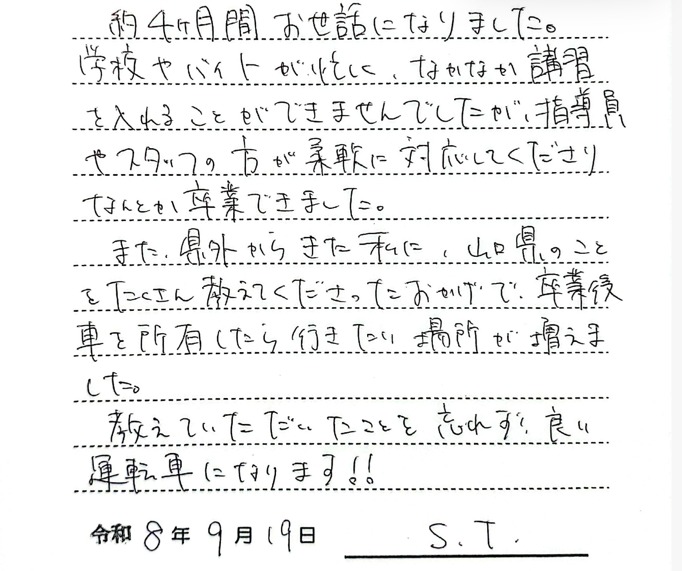 約4ヶ月間お世話になりました。
学校やバイトが忙しく、なかなか講習
を入れることができませんでしたが、指導員
やスタッフの方が柔軟に対応してくださり
なんとか卒業できました。
また、県外からきた私に、山口県のこと
をたくさん教えてくださったおかげで、卒業後
車を所有したら行きたい場所が増えま
した。
教えていただいたことを忘れず、良い
運転車になります!!
令和8年9月19日 S.T.